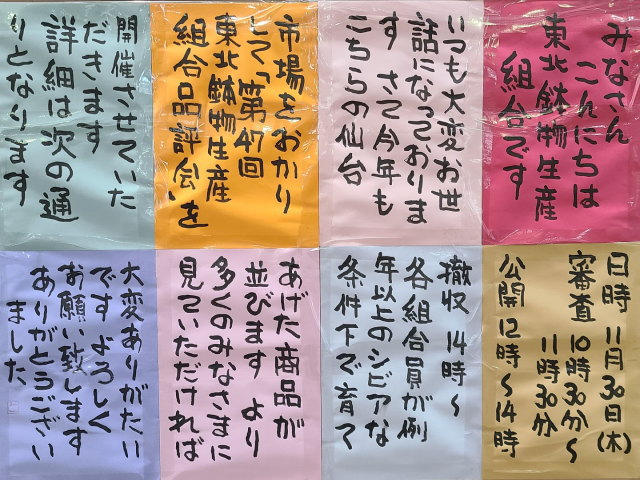 みなさん
こんにちは
東北鉢物生産
組合です
いつも大変お世
話になっておりま
す さて今年も
こちらの仙台
市場をおかり
して「第47回
東北鉢物生産
組合品評会」を
開催させていた
だきます
詳細は次の通
りとなります
日時 11月30日(木)
審査 10時30分〜
11時30分
公開 12時〜14時
撤収 14時〜
各組合員が例
年以上のシビアな
条件下で育て
あげた商品が
並びます より
多くのみなさまに
見ていただければ
大変ありがたい
ですよろしく
お願い致します
ありがとうござい
ました